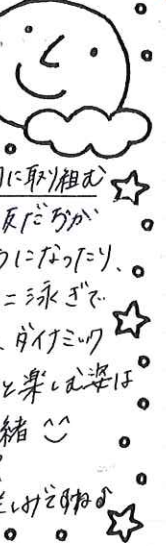 に取り組む
友だちが
うになったり、
ニ泳ぎで
、ダイナミック
と楽しむ姿は
緒^^
しみですね♪